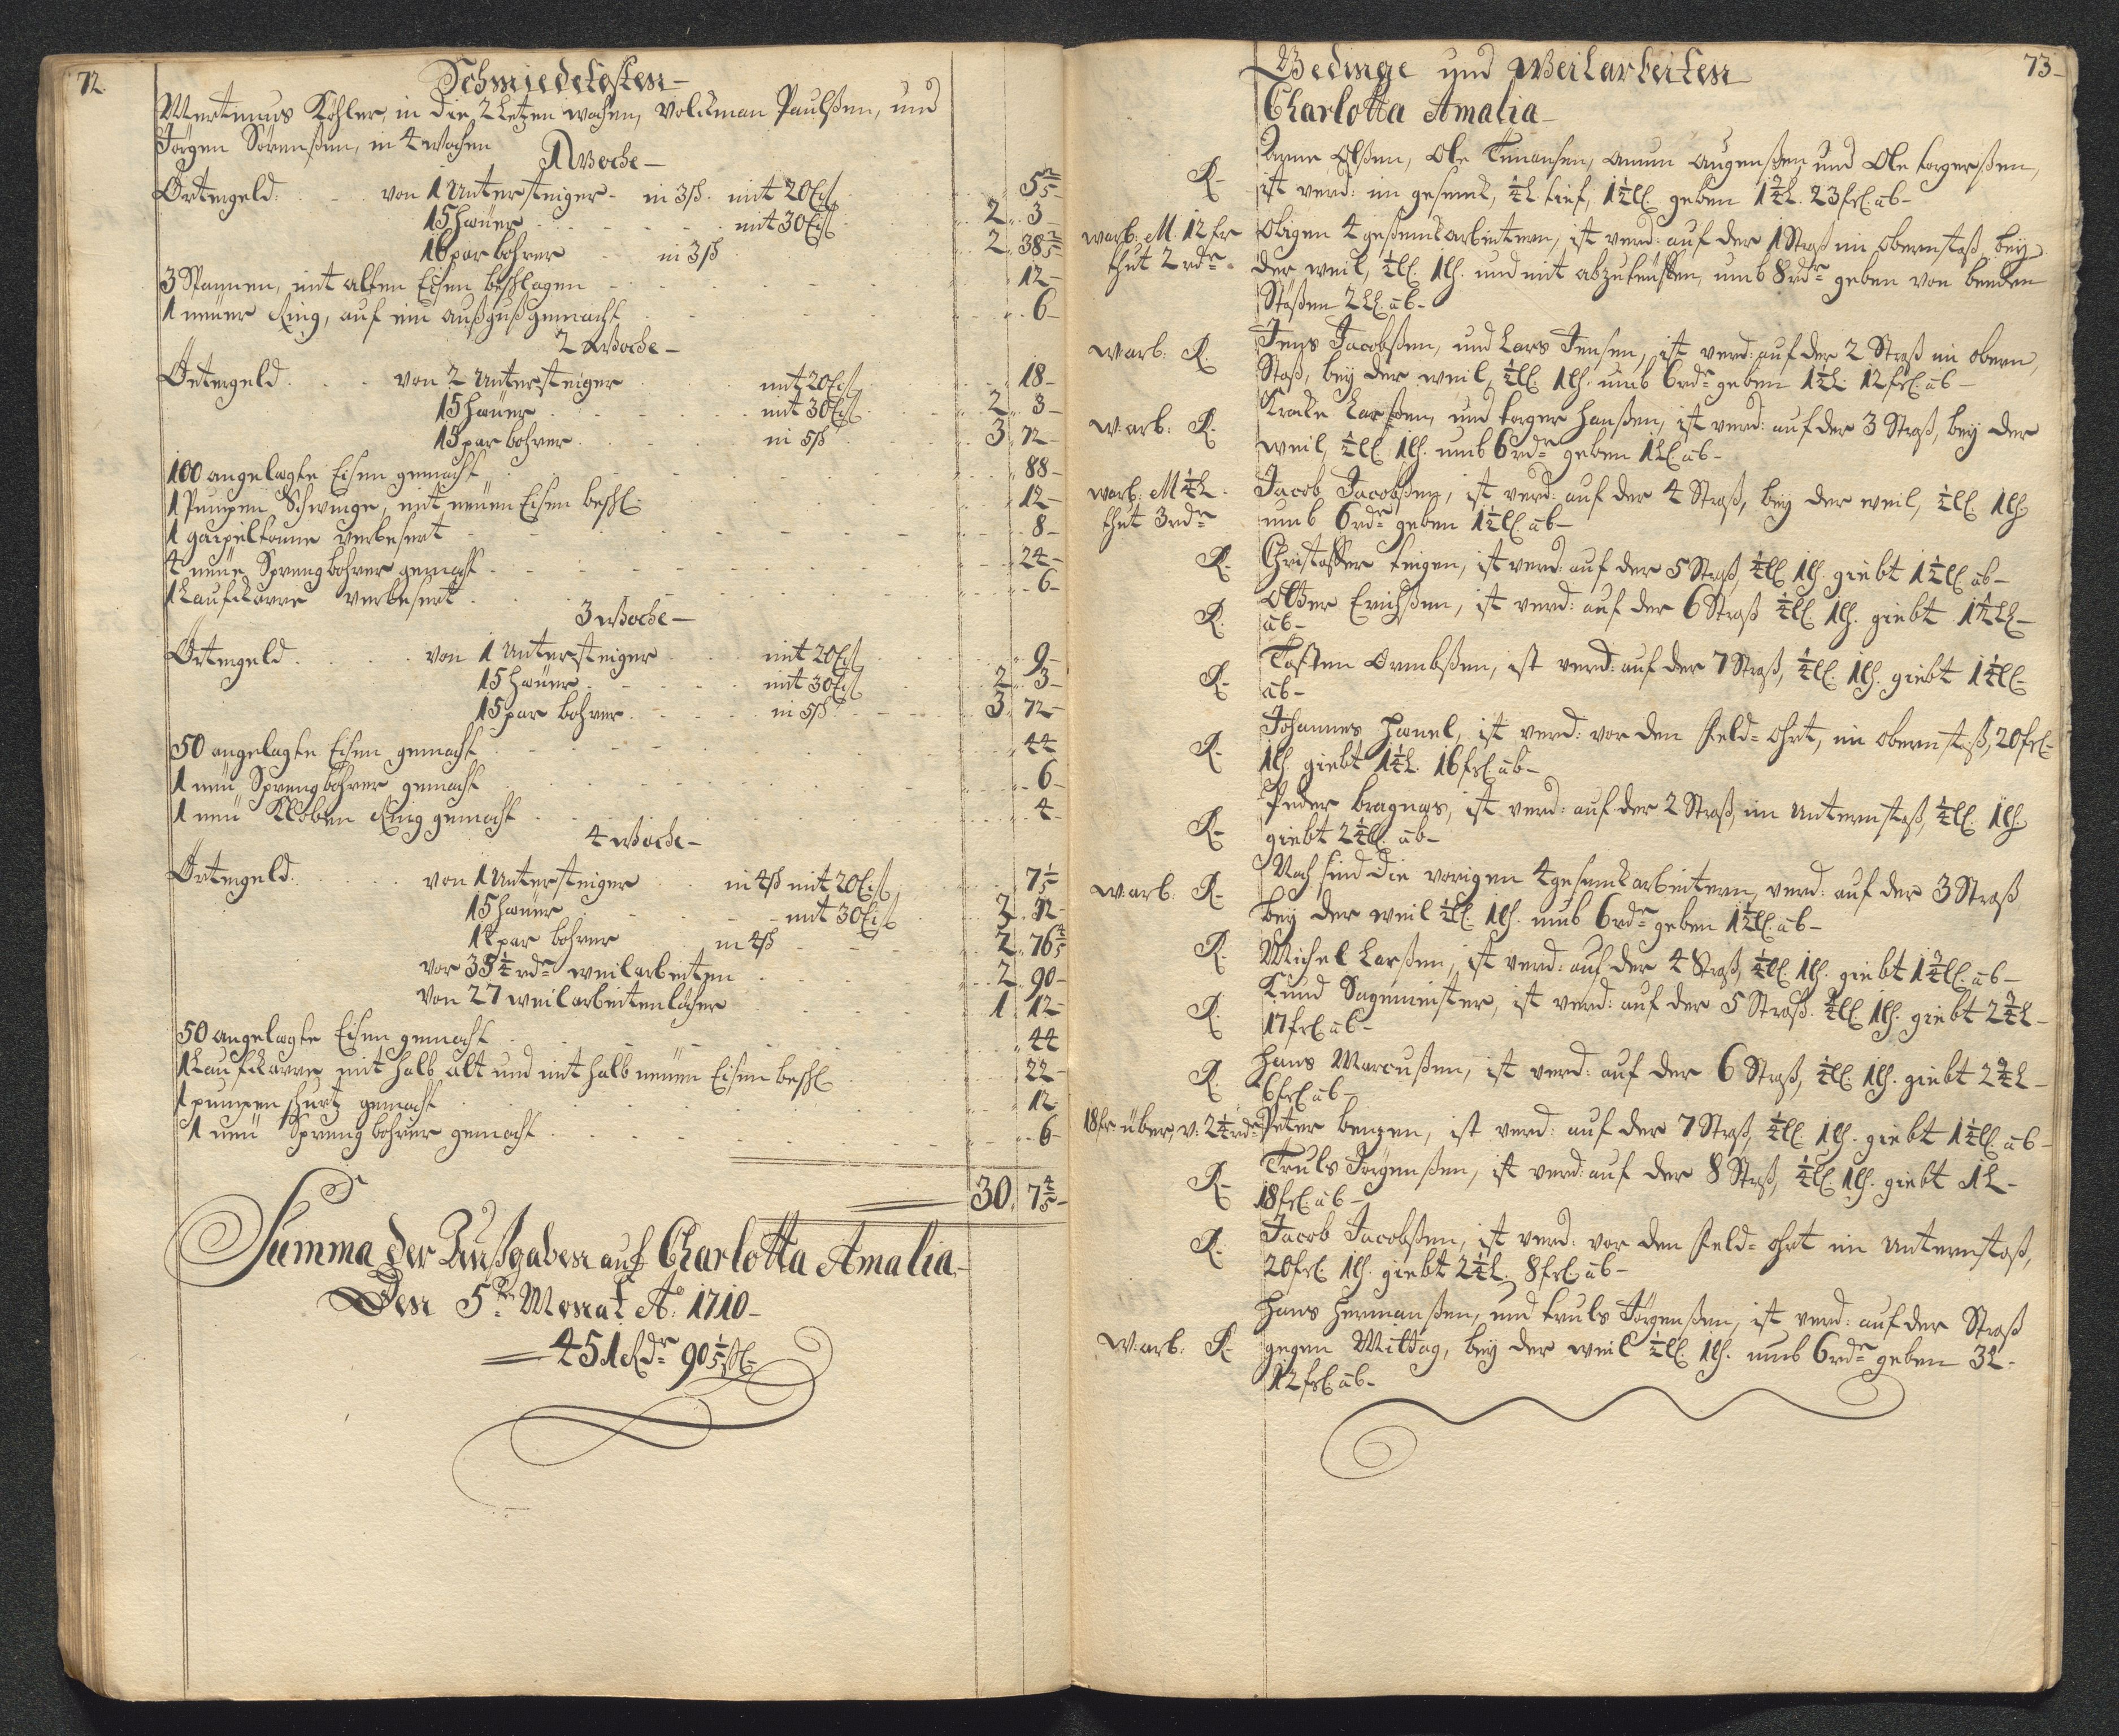 72.
Schmiedekosten
Mertinus Köhler, in die 2 Letzen wochen, Volckman Paulßen, und
Jörgen Sörenßen, in 4 wochen
1 Woche
Örtergeld von 1 Untersteiger in 3 ß mit 20 Eis 5 2/5
15 hauer mit 30 Eis 2 3
16 par bohrer in 3 ß 2 38 2/5
3 Spannen, mit alten Eisen beschlagen 12
1 neuer Ring, auf ein außguß gemacht 6
2 Woche
Örtergeld von 2 Untersteiger mit 20 Eis 18
15 hauer mit 30 Eis 2 3
15 par bohrer in 5 ß 3 72
100 angelegte Eisen gemacht 88
1 Pumpen Schwinge, mit neuen Eisen beschl. 12
1 gaipeltonne verbesert 8
4 neue Sprengbohrer gemacht 24
1 Laufkarre verbesert 6
3 Woche
Örtergeld von 1 Untersteiger mit 20 Eis 9
15 hauer mit 30 Eis 2 3
15 par bohrer in 5 ß 3 72
50 angelegte Eisen gemacht 44
1 neu Sprengbohrer gemacht 6
1 neu Kloben Ring gemacht 4
4 Woche
Örtergeld von 1 Untersteiger in 4 ß mit 20 Eis 7 1/5
15 hauer mit 30 Eis 2
14 par bohrer in 4 ß 2 76 4/5
vor 35 1/4 rdr weilarbeiten 2 90
Von 27 weilarbeitenlächer 1 12
50 angelegte Eisen gemacht 44
1 Laufkarre mit halb alt und mit halb neuen Eisen beschl 22
1 pumpen schurtz gemacht 12
1 neu Sprengbohrer gemacht 6
30. 7 4/5
Summa der Außgaben auf Charlotta Amalia
Den 5te Monat Ao 1710
451 Rdr 90 1/5 ßl
73
Gedinge und Weilarbeiten
Charlotta Amalia
R Olßen, Ole Amun Augenßen und Ole torgerßen,
ist verd: im gesenck, 1/4 L tief, 1 1/2 ll geben 1 3/4 L. 23 frl. ab
warb: M. 12 fr Obigen 4 gesenckarbeitern, ist verd: auf der 1 Straß im obernstoß, bey
thut 2 rdr der weil, 1/4 ll. 1 lh. und mit abzuteuffen, umb 8 rdr geben von beeden
Stößen 2 LL ab
warb: R. Jens Jacobßen, und Lars Jensen, ist verd: auf der 2 Straß im obern
Stoß, bey der weil, 1/4 ll. 1 lh. umb 6 rdr geben 1 1/2 L. 12 frl. ab
warb: R. Larßen, und torger Hanßen, ist verd: auf der 3 Straß, bey der
weil, 1/4 ll. 1 lh. umb 6 rdr geben 1 Ll ab
warb: M 1/4 L. Jacob Jacobßen, ist verd: auf der 4 Straß, bey der weil, 1/4 ll. 1 lh.
thut 3 rdr umb 6 rdr geben 1 1/2 ll ab
R. Christoffer ist verd: auf der 5 Straß, 1/4 ll. 1 lh. giebt 1 1/2 ll. ab
R. Erichßen, ist verd: auf der 6 Straß 1/4 ll. 1 lh. giebt 1 1/4 LL
ab
R. Tosten ist verd: auf der 7 Straß, 1/4 ll. 1 lh. giebt 1 1/4 ll
ab
R. Johannes Hanel, ist verd: vor den Feld-ohrt, im obernstoß, 20 frl
1 lh giebt 1 1/4 L. 16 frl ab
R. Peder bragnas, ist verd: auf der 2 Straß, im Unternstoß, 1/4 ll. 1 lh.
giebt 2 1/4 ll. ab
warb: R. Noch sind die vorigen 4 gesenckarbeitern, verd: auf der 3 Straß
bey der weil 1/4 ll. 1 lh. umb 6 rdr geben 1 1/2 ll. ab
R. Michel Larßen, ist verd: auf der 4 Straß, 1/4 ll. 1 lh. giebt 1 3/4 ll. ab
R. Knud Sagmeister, ist verd: auf der 5 Straß. 1/4 ll. 1 lh. giebt 2 3/4 L
17 frl. ab
R. Hans Marcußen, ist verd: auf der 6 Straß, 1/4 ll. 1 lh. giebt 2 3/4 L
6 frl ab
18 fr über, v: 2 1/4 rdr Peter benzen, ist verd: auf der 7 Straß, 1/4 ll. 1 lh. giebt 1 1/4 ll. ab
R. Truls Jörgenßen, ist verd: auf der 8 Straß, 1/4 ll. 1 lh. giebt 1 L
18 frl. ab
R. Jacob Jacobßen, ist verd: vor den Feld-ohrt im Unternstoß,
20 frl 1 lh. giebt 2 1/4 L. 8 frl ab
Hans Hermanßen, und truls Jörgenßen, ist verd: auf der Straß
warb: R. gegen Mittag, bey der weil 1/4 ll. 1 lh. umb 6 rdr geben 3 L.
12 frl. ab